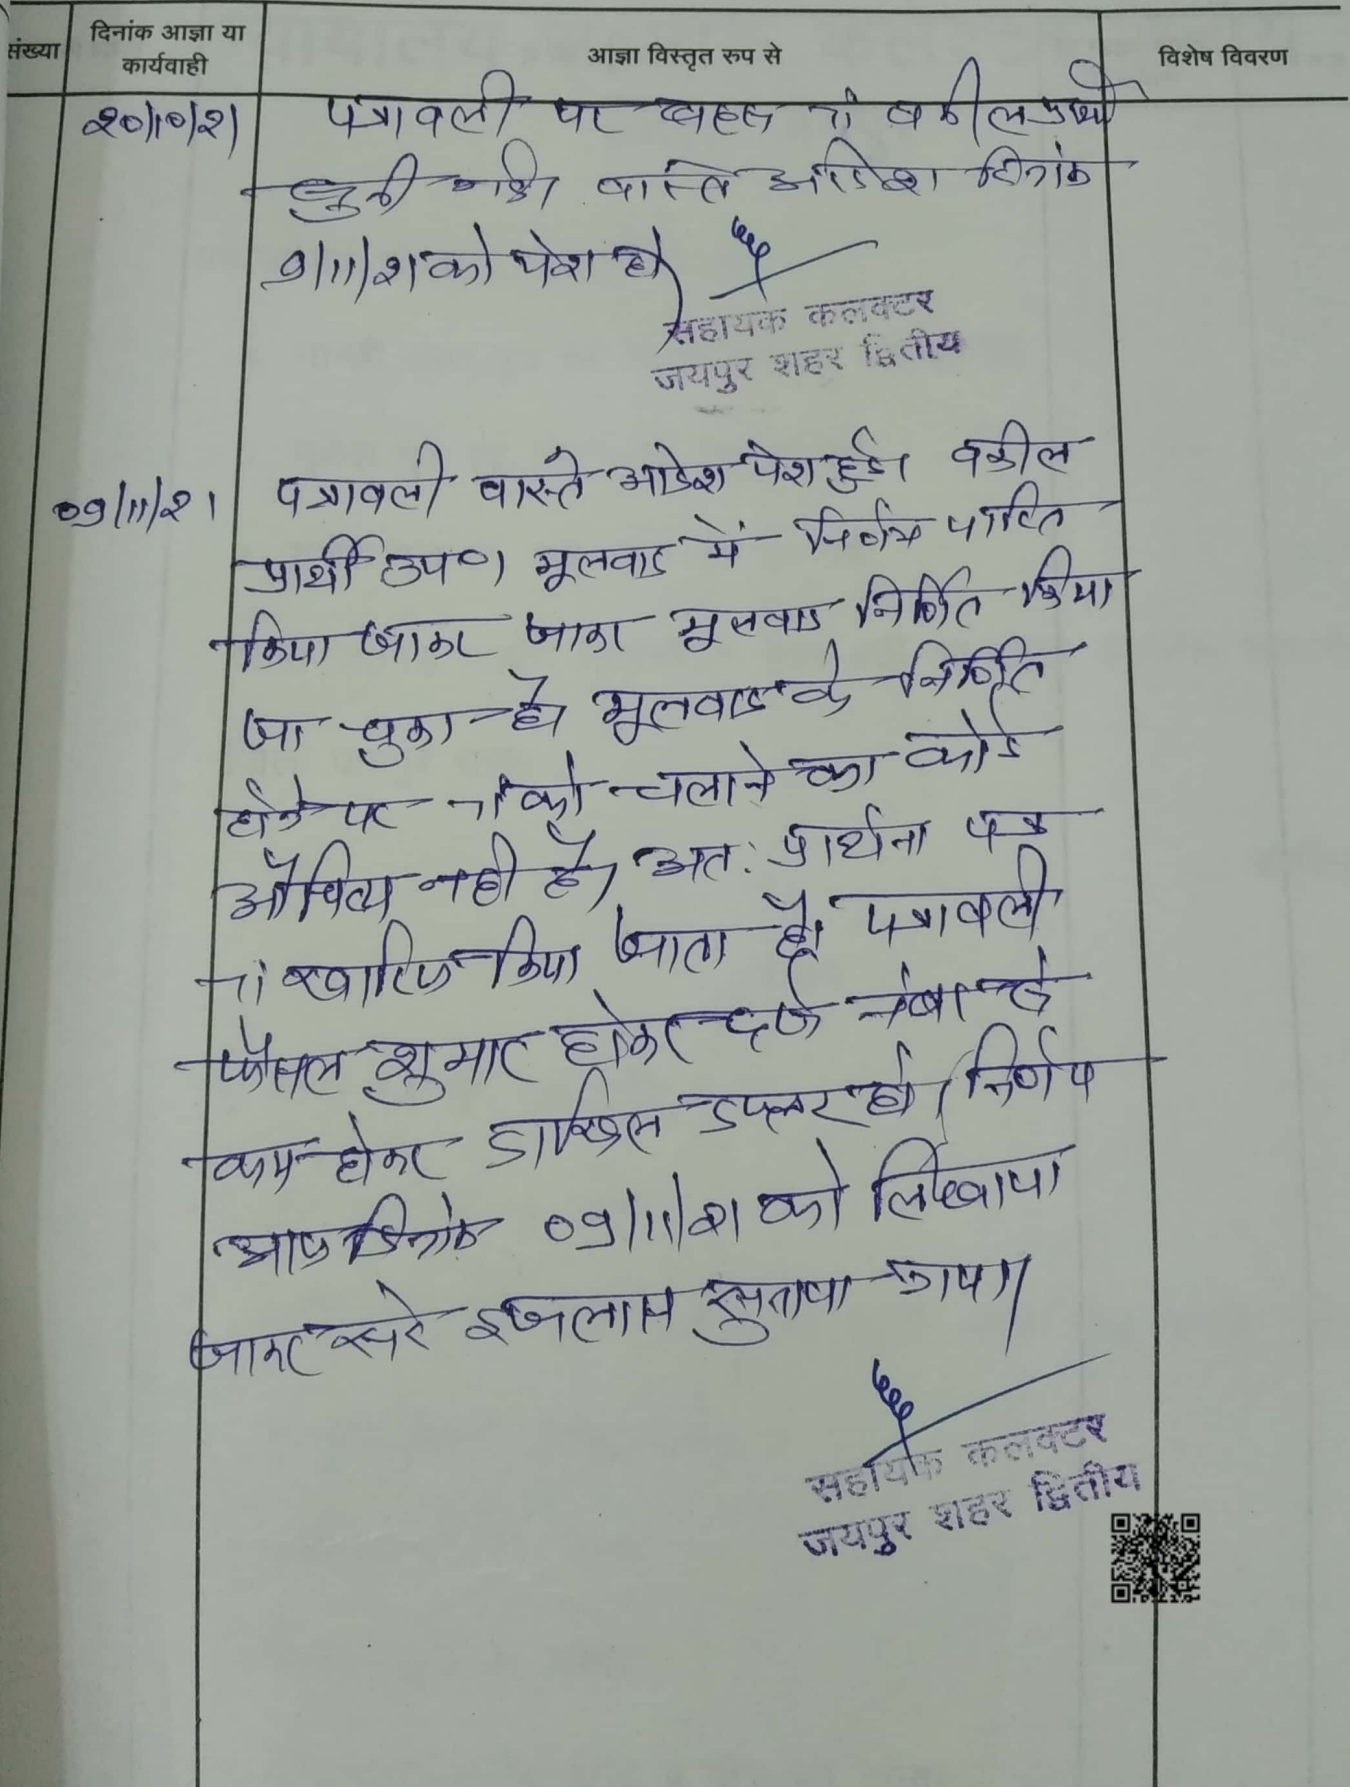 संख्या
दिनांक आज्ञा या
कार्यवाही
आज्ञा विस्तृत रुप से
विशेष विवरण
20/10/21
पत्रावली पर बहस वकील प्रार्थी
सुनी गयी। वास्ते आदेश दिनांक
9/11/21 को पेश हो
सहायक कलक्टर
जयपुर शहर द्वितीय
09/11/21
पत्रावली वास्ते आदेश पेश हुई। वकील
प्रार्थी उप०। मूलवाद में निर्णय पारित
किया जाकर जाकर मूलवाद निर्णित किया
जा चुका है। मूलवाद के निर्णित
होने पर को चलाने का कोई
औचित्य नही है। अतः प्रार्थना पत्र
खारिज किया जाता है। पत्रावली
फैसल शुमार होकर दर्ज नंबर से
कम होकर दाखिल दफ्तर हो। निर्णय
आज दिनांक 09/11/21 को लिखाया
जाकर सरे इजलास सुनाया गया।
सहायक कलक्टर
जयपुर शहर द्वितीय